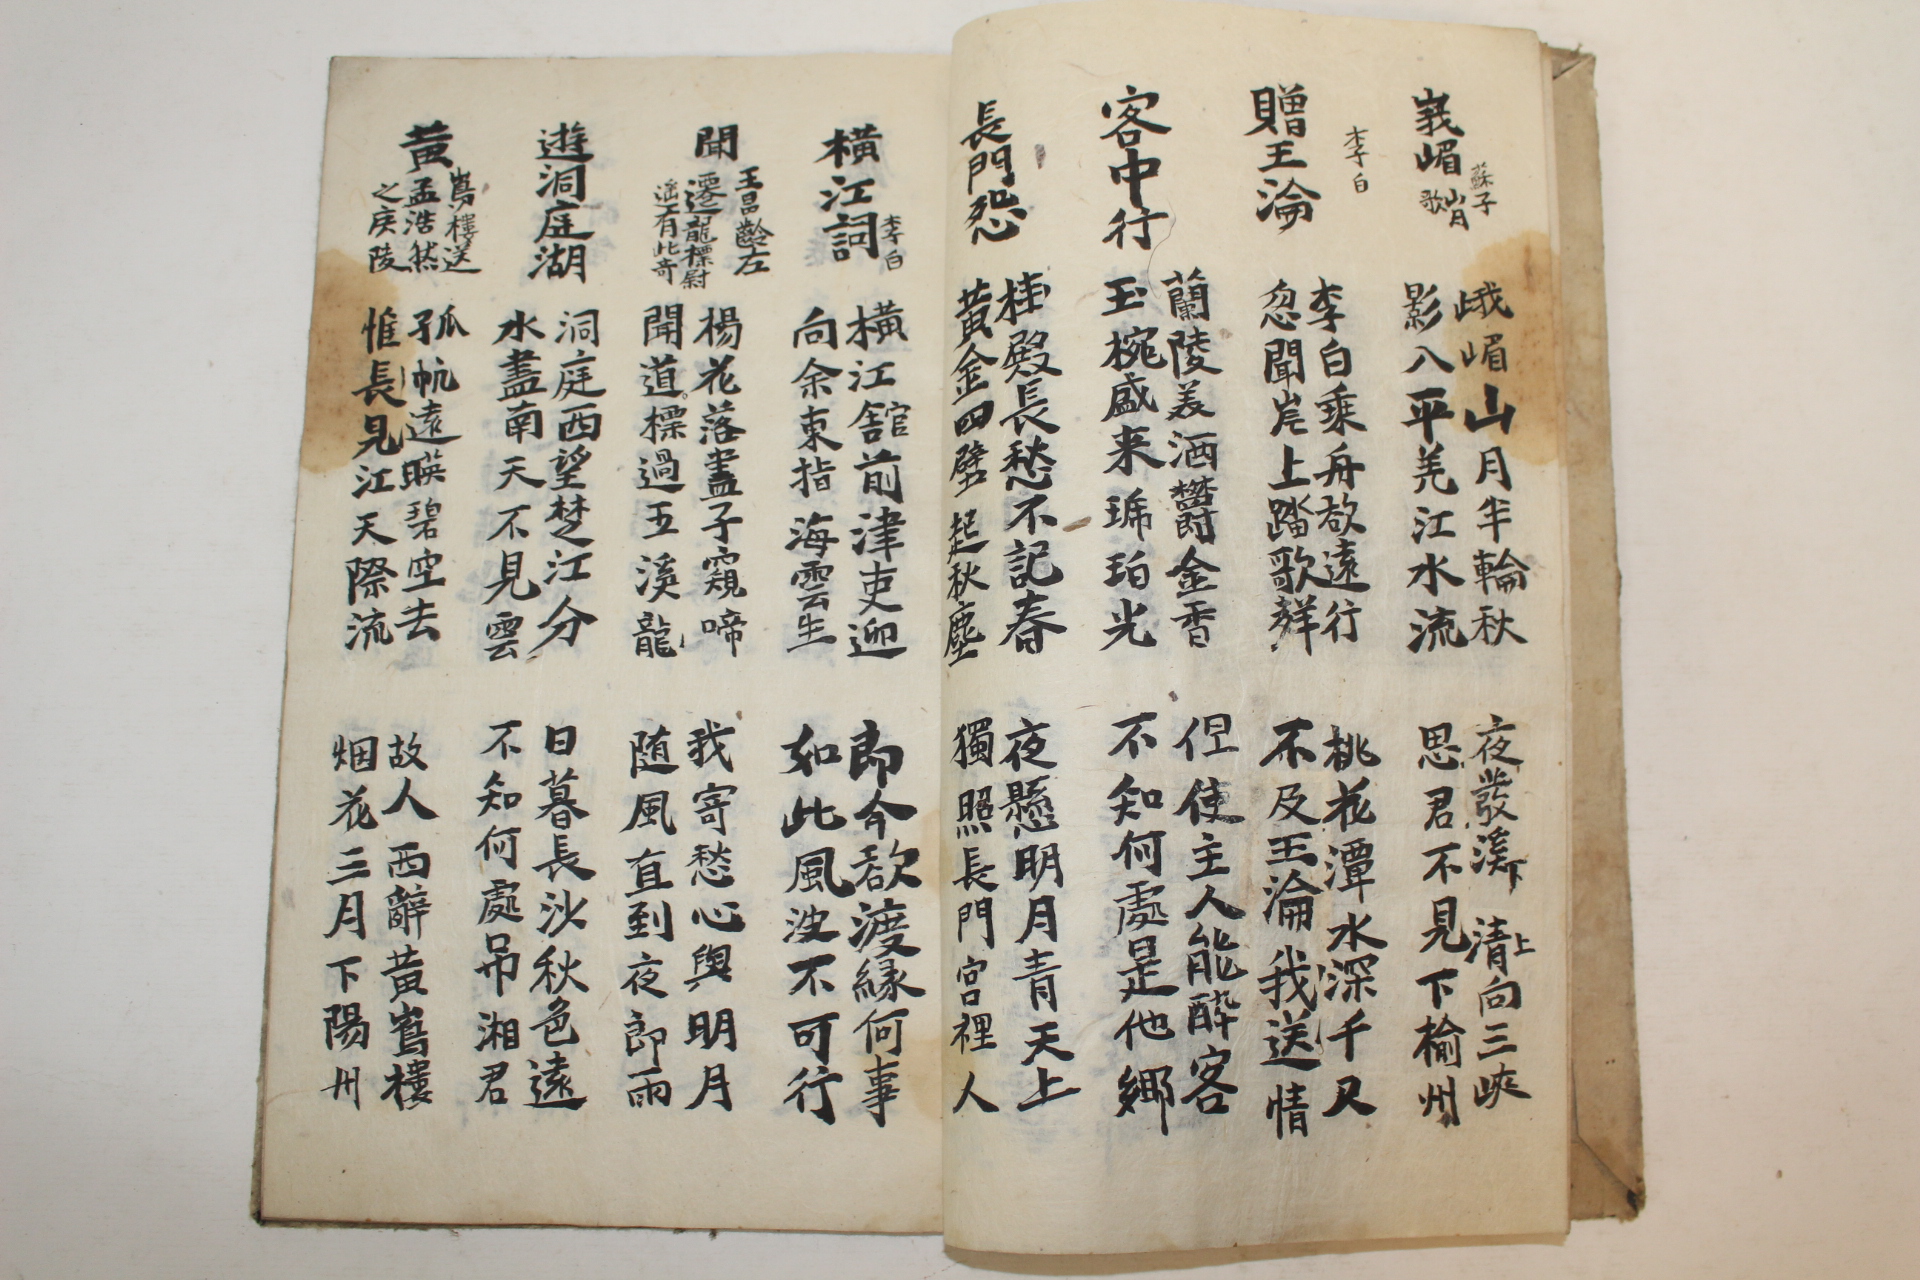 峩嵋山月歌
蘇子
峨嵋山月半輪秋
影入平羌江水流
夜發淸溪向三峽
思君不見下楡州
李白
贈王淪
李白乘舟欲遠行
忽聞岸上踏歌聲
桃花潭水深千尺
不及王淪我送情
客中行
蘭陵美酒欝金香
玉椀盛来琥珀光
但使主人能醉客
不知何處是他鄉
長門怨
桂殿長愁不記春
黃金四壁起秋塵
夜懸明月青天上
獨照長門宮裡人
橫江詞
李白
橫江舘前津吏迎
向余東指海雲生
卽今欲渡緣何事
如此風波不可行
聞王昌齡左
遷龍標尉
遙有此寄
楊花落盡子䂓啼
聞道龍標過五溪
我寄愁心與明月
随風直到夜郎雨
遊洞庭湖
洞庭西望楚江分
水盡南天不見雲
日暮長沙秋色遠
不知何處吊湘君
黃鶴樓送
孟浩然
之廣陵
孤帆遠暎碧空去
惟見長江天際流
故人西辭黃鶴樓
烟花三月下陽州